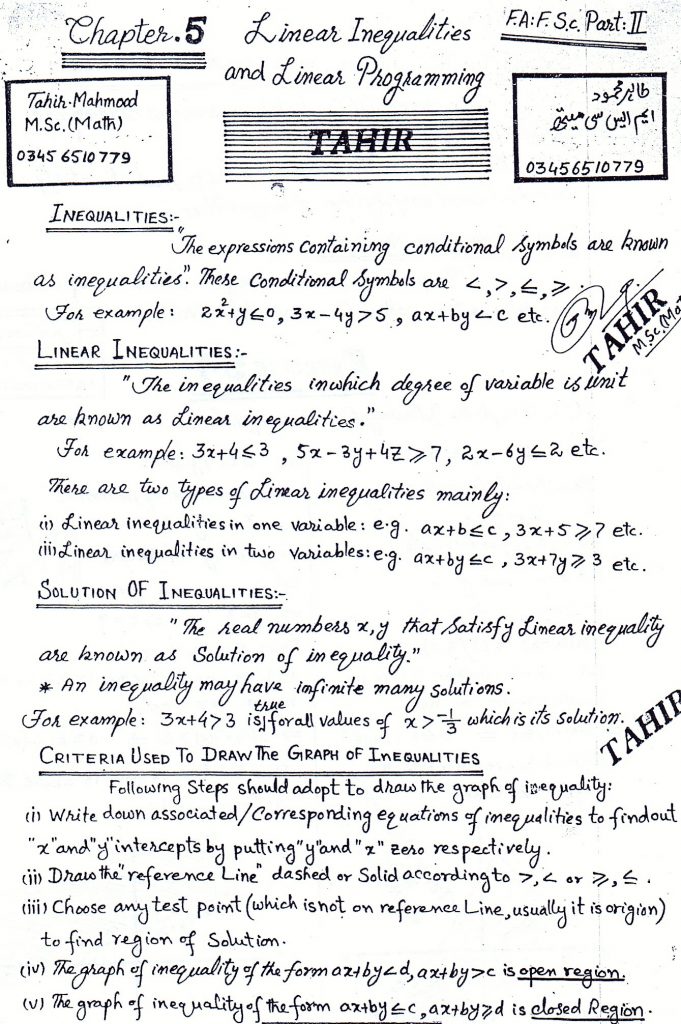 Chapter.5 Linear Inequalities F.A:F.Sc. Part:II
and Linear Programming
Tahir Mahmood
M.Sc.(Math)
0345 6510779
TAHIR
طاہر محمود
ایم ایس سی میتھ
03456510779
INEQUALITIES:-
"The expressions containing conditional symbols are known
as inequalities". These Conditional Symbols are <,>,≤,≥.
For example: 2x²+y≤0, 3x-4y>5, ax+by<c etc.
TAHIR
M.Sc.(Mat
LINEAR INEQUALITIES:-
"The inequalities inwhich degree of variable is unit
are known as Linear inequalities."
For example: 3x+4≤3, 5x-3y+4z≥7, 2x-6y≤2 etc.
There are two types of Linear inequalities mainly:
(i) Linear inequalities in one variable: e.g. ax+b≤c, 3x+5≥7 etc.
(ii) Linear inequalities in two variables: e.g. ax+by≤c, 3x+7y≥3 etc.
SOLUTION OF INEQUALITIES:-
"The real numbers x,y that satisfy Linear inequality
are known as Solution of inequality."
* An inequality may have infinite many solutions.
For example: 3x+4>3 is true for all values of x>-1/3 which is its solution.
TAHIR
CRITERIA USED TO DRAW The GRAPH OF INEQUALITIES
Following Steps should adopt to draw the graph of inequality:
(i) Write down associated/Corresponding equations of inequalities to findout
"x" and "y" intercepts by putting "y" and "x" zero respectively.
(ii) Draw the "reference Line" dashed or Solid according to >,< or ≥,≤.
(iii) Choose any test point (which is not on reference Line, usually it is origion)
to find region of Solution.
(iv) The graph of inequality of the form ax+by<d, ax+by>c is open region.
(v) The graph of inequality of the form ax+by≤c, ax+by≥d is closed Region.